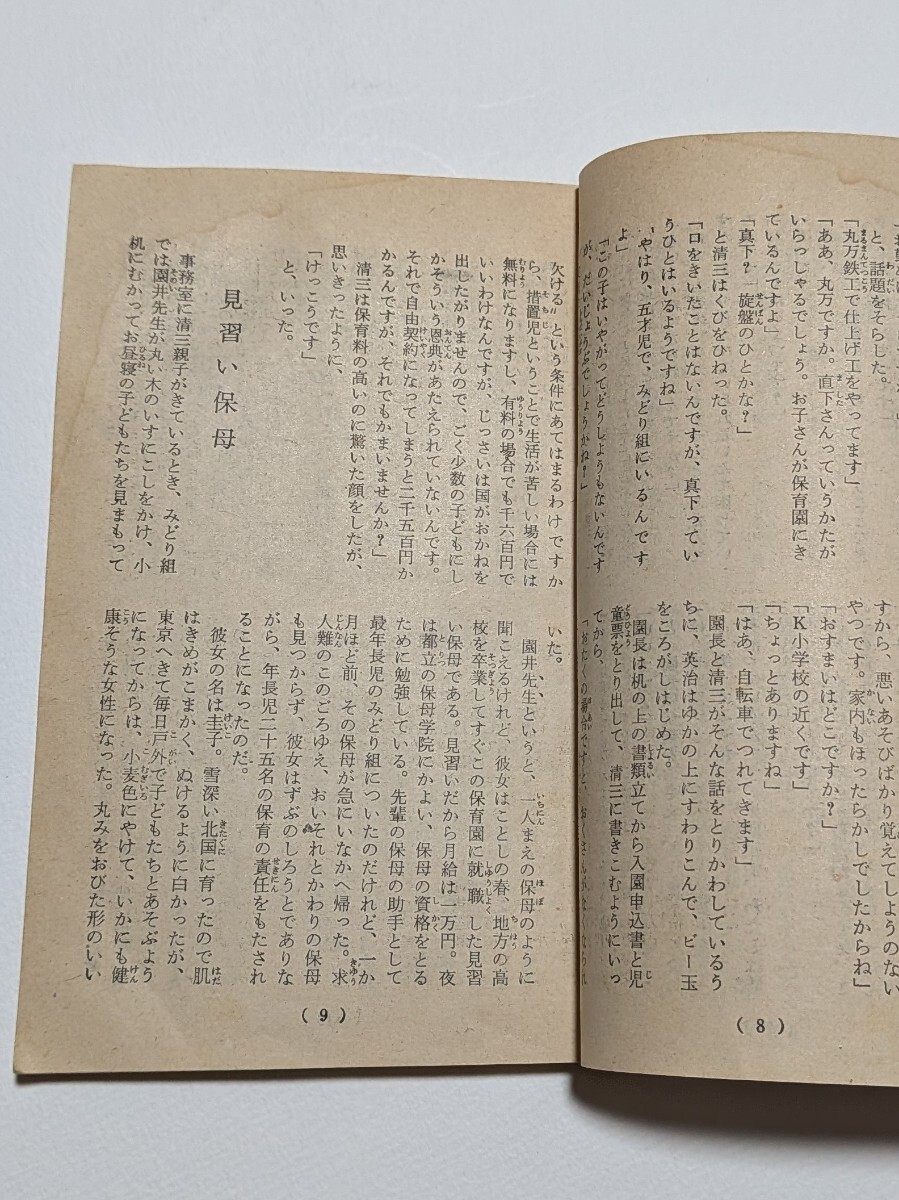 と、話題をそらした。
「丸万鉄工で仕上げ工をやってます」
「ああ、丸万ですか。真下さんっていうかたが
いらっしゃるでしょう。お子さんが保育園にき
ているんですよ」
「真下？　旋盤のひとかな？」
と清三はくびをひねった。
「口をきいたことはないんですが、真下ってい
うひとはいるようですね」
「やはり、五才児で、みどり組にいるんです
よ」
「この子はいやがってどうしようもないんです
が、だいじょうぶでしょうかね？」
すから、悪いあそびばかり覚えてしようのない
やつです。家内もほったらかしでしたからね」
「おすまいはどこですか？」
「K小学校の近くです」
「ちょっとありますね
「はあ、自転車でつれてきます」
園長と清三がそんな話をとりかわしているう
ちに、英治はゆかの上にすわりこんで、ビー玉
をころがしはじめた。
園長は机の上の書類立てから入園申込書と児
童票をとり出して、清三に書きこむようにいっ
てから、
（8）
欠ける〟という条件にあてはまるわけですか
ら、措置児ということで生活が苦しい場合には
無料になりますし、有料の場合でも千六百円で
いいわけなんですが、じっさいは国がおかねを
出したがりませんので、ごく少数の子どもにし
かそういう恩典があたえられていないんです。
それで自由契約になってしまうと二千五百円か
かるんですが、それでもかまいませんか？」
清三は保育料の高いのに驚いた顔をしたが、
思いきったように、
「けっこうです」
と、いった。
見習い保母
事務室に清三親子がきているとき、みどり組
では園井先生が丸い木のいすにこしをかけ、小
机にむかってお昼寝の子どもたちを見まもって
いた。
園井先生というと、一人まえの保母のように
聞こえるけれど、彼女はことしの春、地方の高
校を卒業してすぐこの保育園に就職した見習
い保母である。見習いだから月給は一万円。夜
は都立の保母学院にかよい、保母の資格をとる
ために勉強している。先輩の保母の助手として
最年長児のみどり組についたのだけれど、一か
月ほど前、その保母が急にいなかへ帰った。求
人難のこのごろゆえ、おいそれとかわりの保母
も見つからず、彼女はずぶのしろうとでありな
がら、年長児二十五名の保育の責任をもたされ
ることになったのだ。
彼女の名は圭子。雪深い北国に育ったので肌
はきめがこまかく、ぬけるように白かったが、
東京へきて毎日戸外で子どもたちとあそぶよう
になってからは、小麦色にやけて、いかにも健
康そうな女性になった。丸みをおびた形のいい
（9）